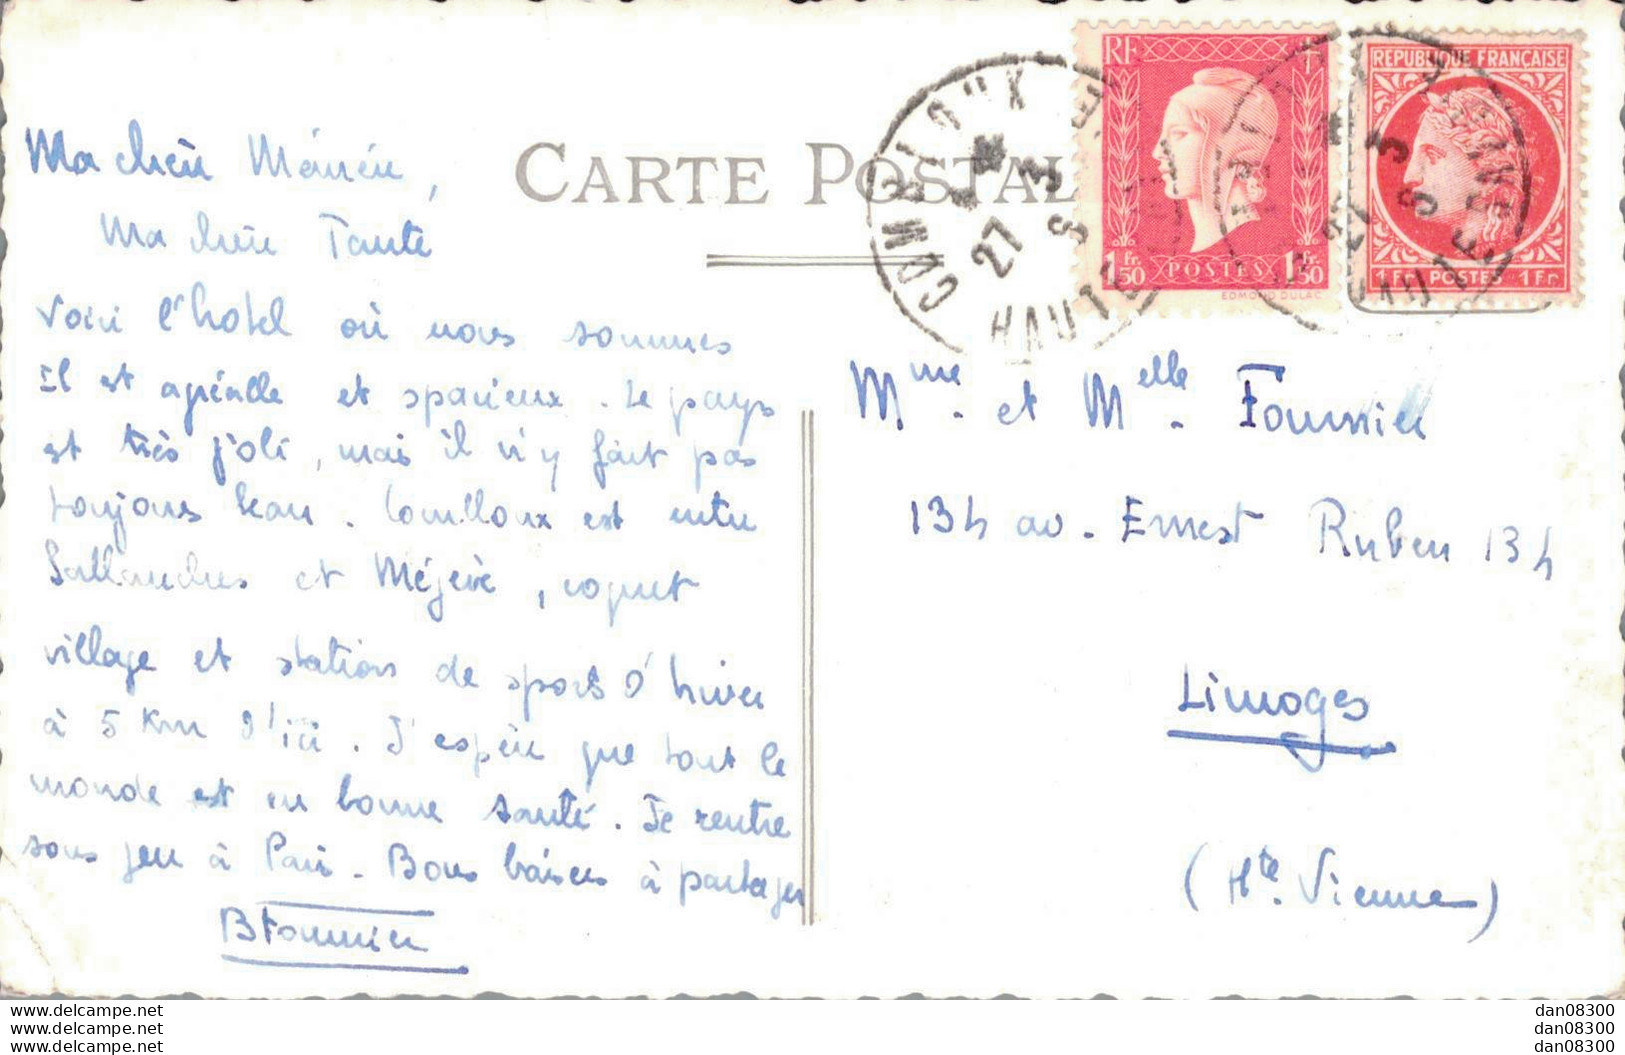 CARTE POSTALE
Ma chère Mémée,
Ma chère Tante
Voici l'hotel où nous sommes
il est agréable et spacieux. Le pays
est très joli, mais il n'y fait pas
toujours beau. Comblloux est entre
Sallanches et Mégève, coquet
village et stations de sports d'hiver
à 5 Km d'ici. J'espère que tout le
monde est en bonne santé. Je rentre
sous peu à Paris. Bons baisers à partager
BFournier
COMBLOUX
27
3
S
HAUTE
RF
1,Fr.50
POSTES
1,Fr.50
EDMOND DULAC
REPUBLIQUE FRANÇAISE
1Fr POSTES 1Fr
HAUTE SAVOIE
Mme. et Melle. Fournier
134 av. Ernest Ruben 134
Limoges
(Hte. Vienne)
https://www.delcampe.net dan08300
https://www.delcampe.net dan08300
https://www.delcampe.net dan08300